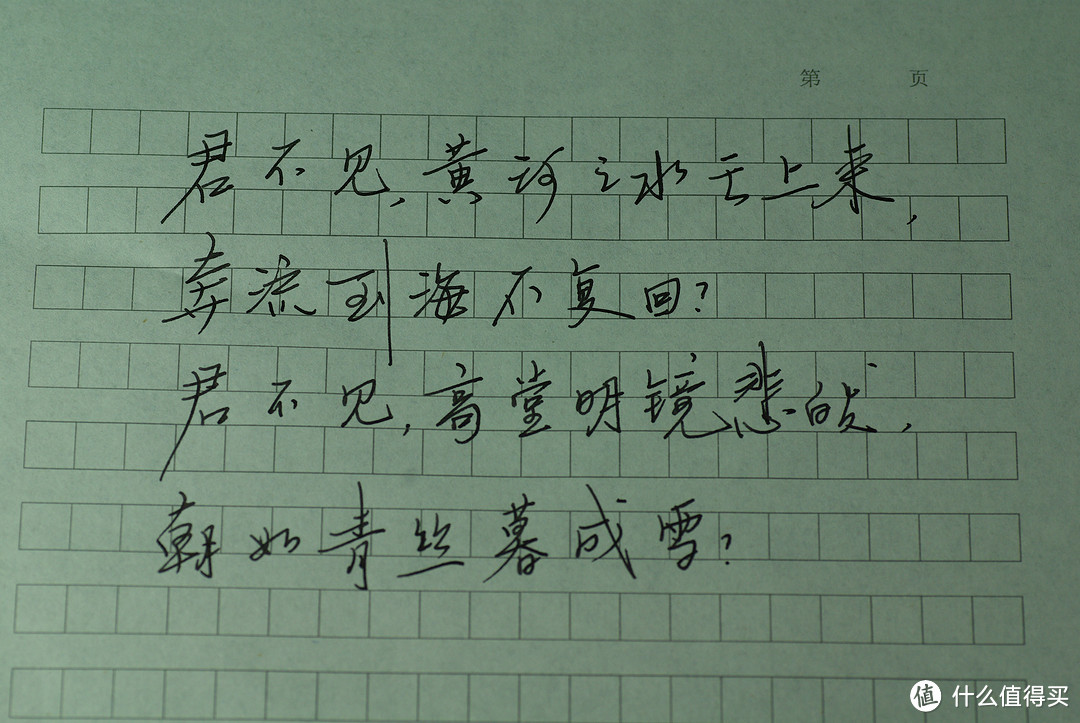 第 页
君不见,黄河之水天上来,
奔流到海不复回?
君不见,高堂明镜悲白发,
朝如青丝暮成雪?
值 什么值得买